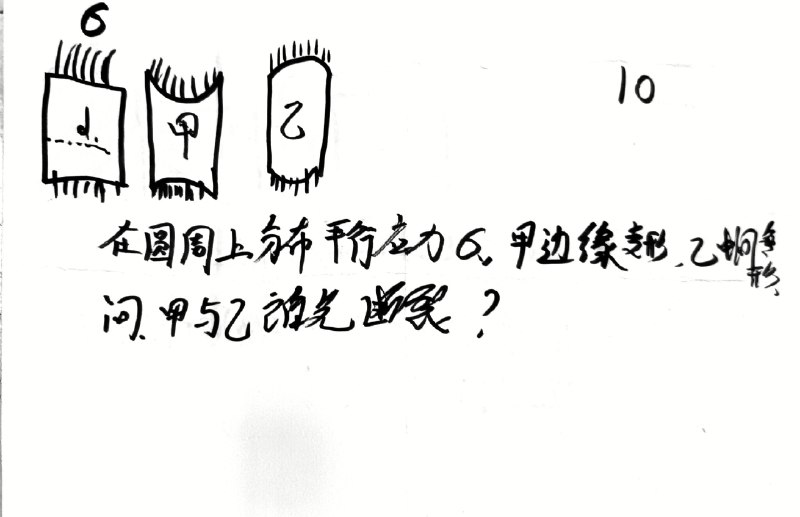 σ
10
d
甲
乙
在圆周上分布平行应力σ。甲边缘变形、乙中间变形、
问、甲与乙谁先断裂？